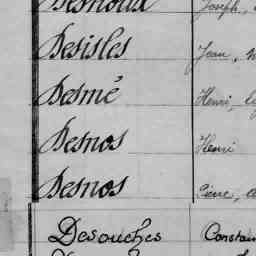 Desnoux Joseph,
Desisles Jean,
Desmé Henri,
Desnos Henri
Desnos Pierre,
Desouches Constan